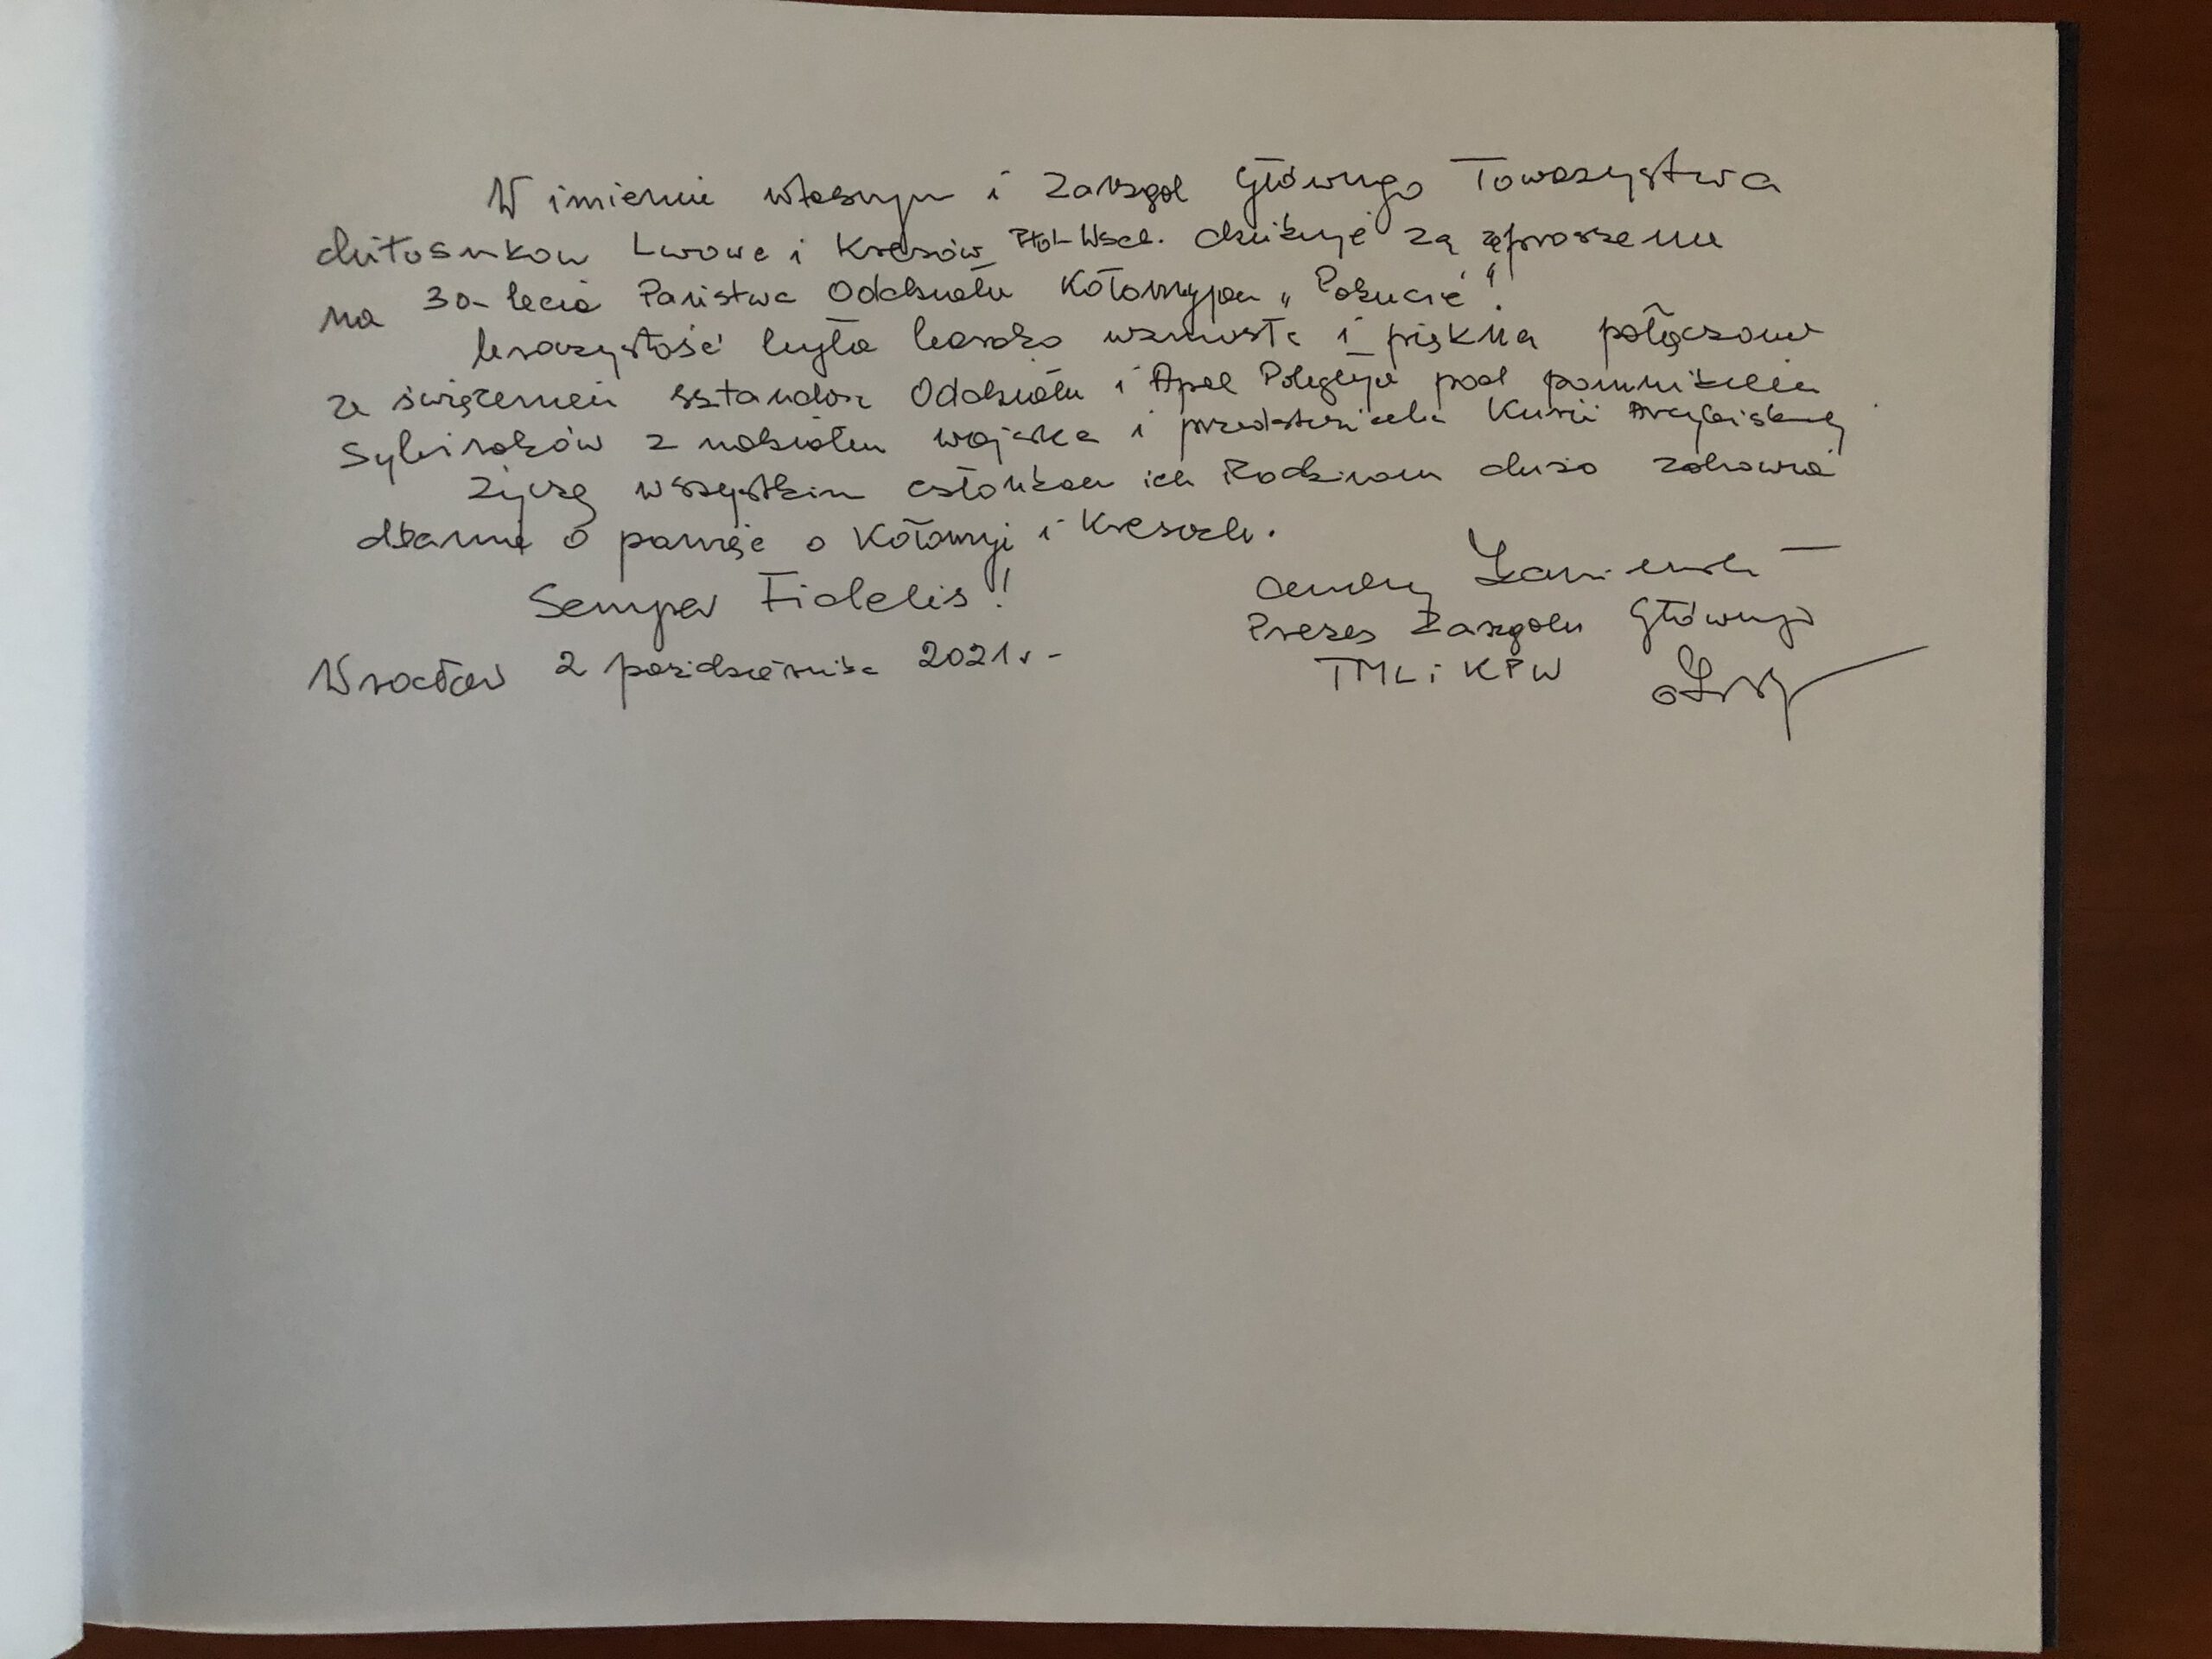 W imieniu własnym i Zarządu Głównego Towarzystwa
Miłośników Lwowa i Kresów Płd-Wsch. dziękuję za zaproszenie
na 30-lecie Państwa Oddziału Kołomyjan „Pokucie".
Uroczystość była bardzo wzniosła i piękna połączona
ze święceniem sztandaru Oddziału i Apel Poległych pod pomnikiem
Sybiraków z udziałem wojska i przedstawiciela Kurii Arcybiskupiej
Życzę wszystkim członkom ich Rodzinom dużo zdrowia
dbanie o pamięć o Kołomyi i Kresach.
Semper Fidelis!
Prezes Zarządu Głównego
TML i KPW
Wrocław 2 października 2021 r.